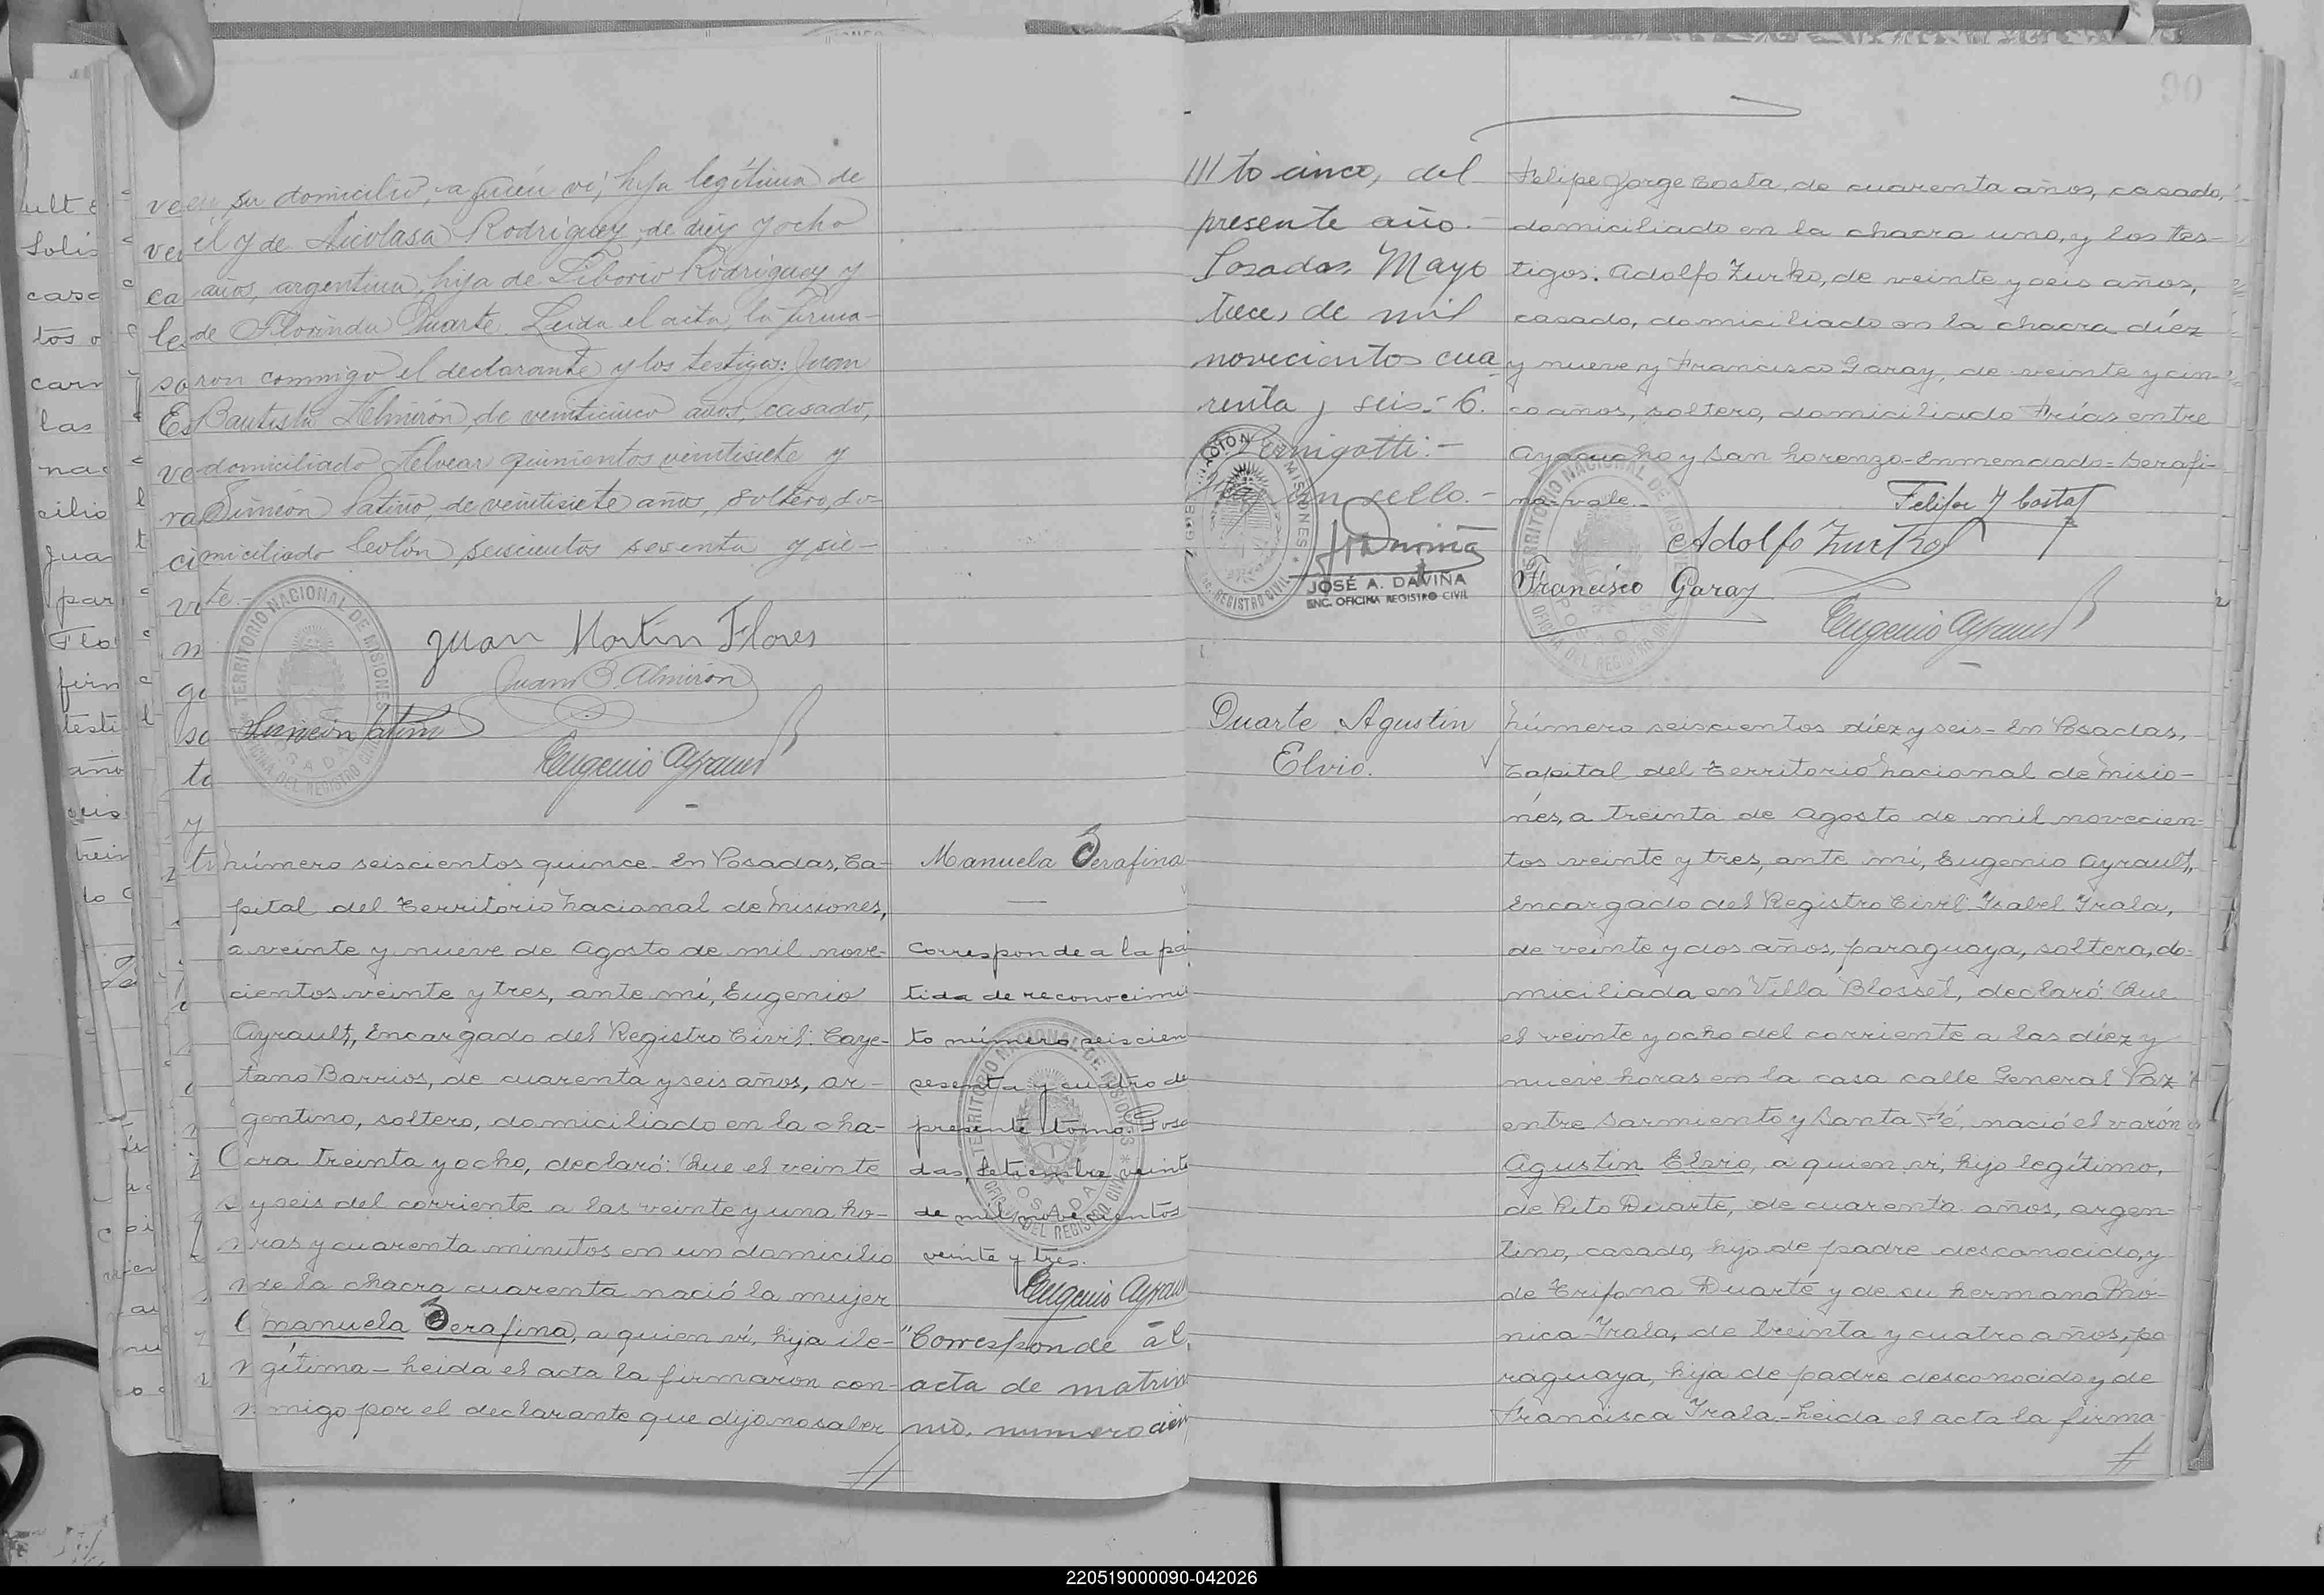 su domicilio, a quien ví, hija legítima de
él y de Nicolasa Rodriguez, de diez y ocho
años, argentina, hija de Liborio Rodriguez y
de Florinda Duarte. Leida el acta, la firma-
ron conmigo el declarante y los testigos: Juan
Bautista Almirón, de veinticinco años, casado,
domiciliado Alvear quinientos veintisiete y
Simeón Patiño, de veintisiete años, soltero, do-
miciliado Colón seiscientos sesenta y sie-
te.-
TERRITORIO NACIONAL DE MISIONES
OFICINA DEL REGISTRO CIVIL
POSADAS
Juan Martin Flores
Juan B. Almirón
Eugenio Ayrault
número seiscientos quince- En Posadas, Ca-
pital del Territorio nacional de Misiones,
a veinte y nueve de Agosto de mil nove-
cientos veinte y tres, ante mí, Eugenio
Ayrault, Encargado del Registro Civil: Caye-
tano Barrios, de cuarenta y seis años, ar-
gentino, soltero, domiciliado en la cha-
cra treinta y ocho, declaró: Que el veinte
y seis del corriente a las veinte y una ho-
ras y cuarenta minutos en un domicilio
de la chacra cuarenta nació la mujer
Manuela Serafina, a quien ví, hija ile-
gítima- Leida el acta la firmaron con-
migo por el declarante que dijo no saber
Manuela Serafina
Corresponde a la par
tida de reconocimie
to número seiscien
sesenta y cuatro de
presente tomo. Posa
das, Setiembre veinte
de mil novecientos
veinte y tres.
Eugenio Ayrau
"Corresponde al
acta de matrimo
nio, numero cien
TERRITORIO NACIONAL DE MISIONES
OFICINA DEL REGISTRO CIVIL
POSADAS
90
/// to cinco, del
presente año.-
Posadas, Mayo
trece, de mil
novecientos cua
renta y seis.- E.
Vernigotti.-
un sello.-
GOBERNACIÓN MISIONES
REGISTRO CIVIL
JOSÉ A. DAVIÑA
ENC. OFICINA REGISTRO CIVIL
Felipe Jorge Costa, de cuarenta años, casado,
domiciliado en la chacra uno, y los tes-
tigos: Adolfo Zurko, de veinte y seis años,
casado, domiciliado en la chacra diez
y nueve y Francisco Garay, de veinte y cin-
co años, soltero, domiciliado Frías entre
Ayacucho y San Lorenzo-Enmendado-Serafi-
na-vale.-
Felipe J Costa
Adolfo Zurko
Francisco Garay
Eugenio Ayrault
TERRITORIO NACIONAL DE MISIONES
OFICINA DEL REGISTRO CIVIL
POSADAS
Duarte Agustin
Elvio.
Número seiscientos diez y seis- En Posadas,
Capital del Territorio nacional de Misio-
nes, a treinta de Agosto de mil novecien-
tos veinte y tres, ante mí, Eugenio Ayrault,
Encargado del Registro Civil: Isabel Irala,
de veinte y dos años, paraguaya, soltera, do-
miciliada en Villa Blosset, declaró: Que
el veinte y ocho del corriente a las diez y
nueve horas en la casa calle General Paz
entre Sarmiento y Santa Fé, nació el varón
Agustin Elvio, a quien ví, hijo legítimo,
de Rito Duarte, de cuarenta años, argen-
tino, casado, hijo de padre desconocido, y
de Trifona Duarte y de su hermana Mó-
nica Irala, de treinta y cuatro años, pa
raguaya, hija de padre desconocido y de
Francisca Irala-Leida el acta la firma
220519000090-042026